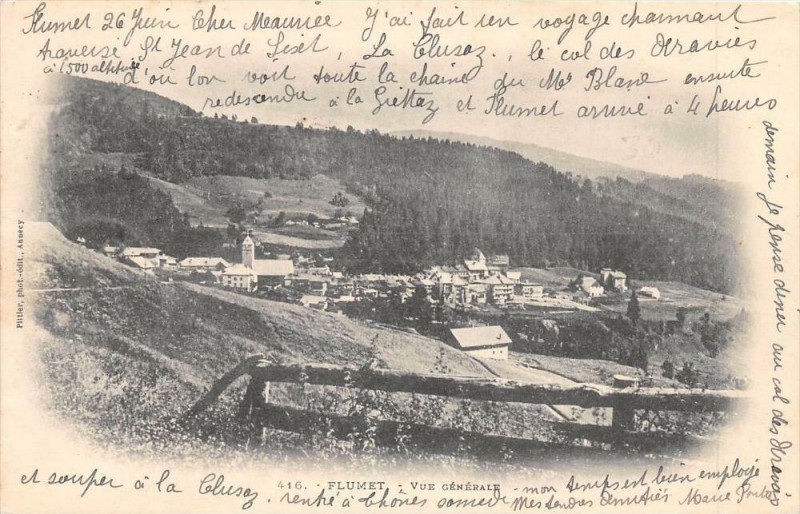 Flumet 26 Juin Cher Meaurice J'ai fait un voyage charmant
traversé St Jean de Sixt, La Clusaz, le col des Aravies
à 1,500 altitude d'où l'on voit toute la chaine du Mt Blanc ensuite
redescendu à la Giettaz et Flumet arrivé à 4 heures
demain je pense diner au col des Aravis
et souper à la Clusaz. rentré à Thônes samedi mon temps est bien employé
Mes tendres Amitiés Marie
Pittier, phot.-édit., Annecy
416. - FLUMET. - VUE GÉNÉRALE